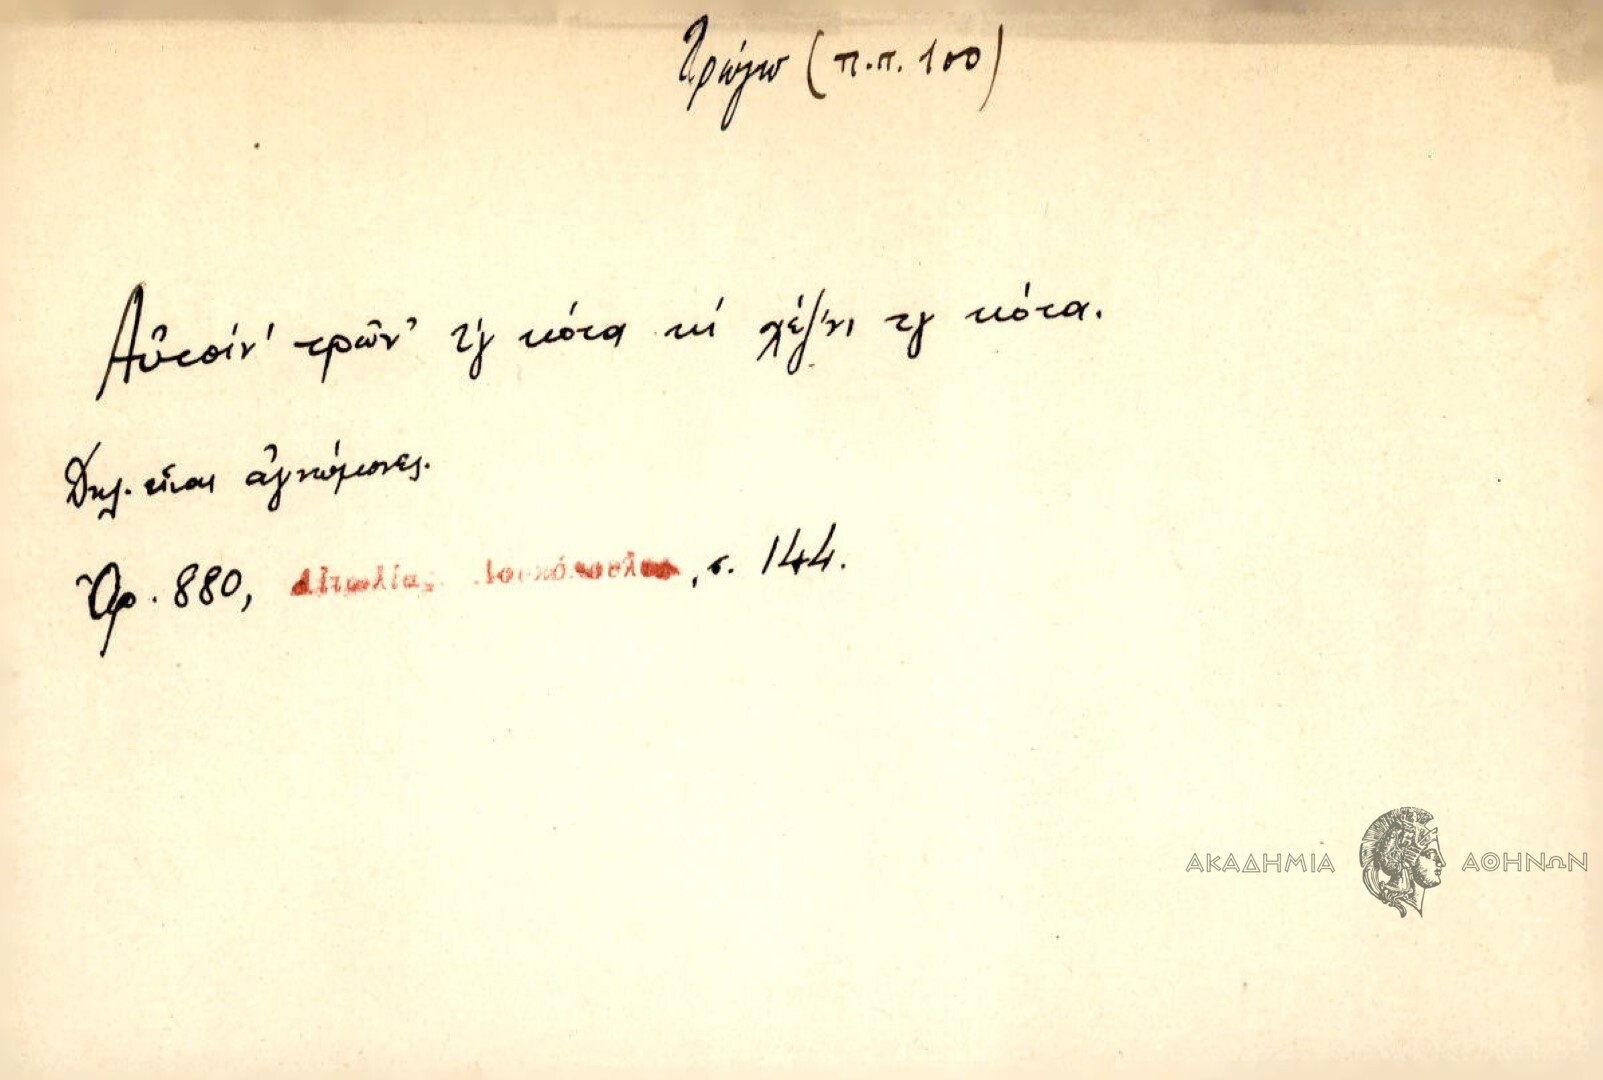 Τρώγω (π.π. 100)
Αὐτοίν' τρῶν' τ'ς κότα κί λέγ'νι τς κότα.
Δηλ. εἶναι ἀγνώμονες.
Ἀρ. 880, Αἰτωλίας, , σ. 144.
ΑΚΑΔΗΜΙΑ ΑΘΗΝΩΝ